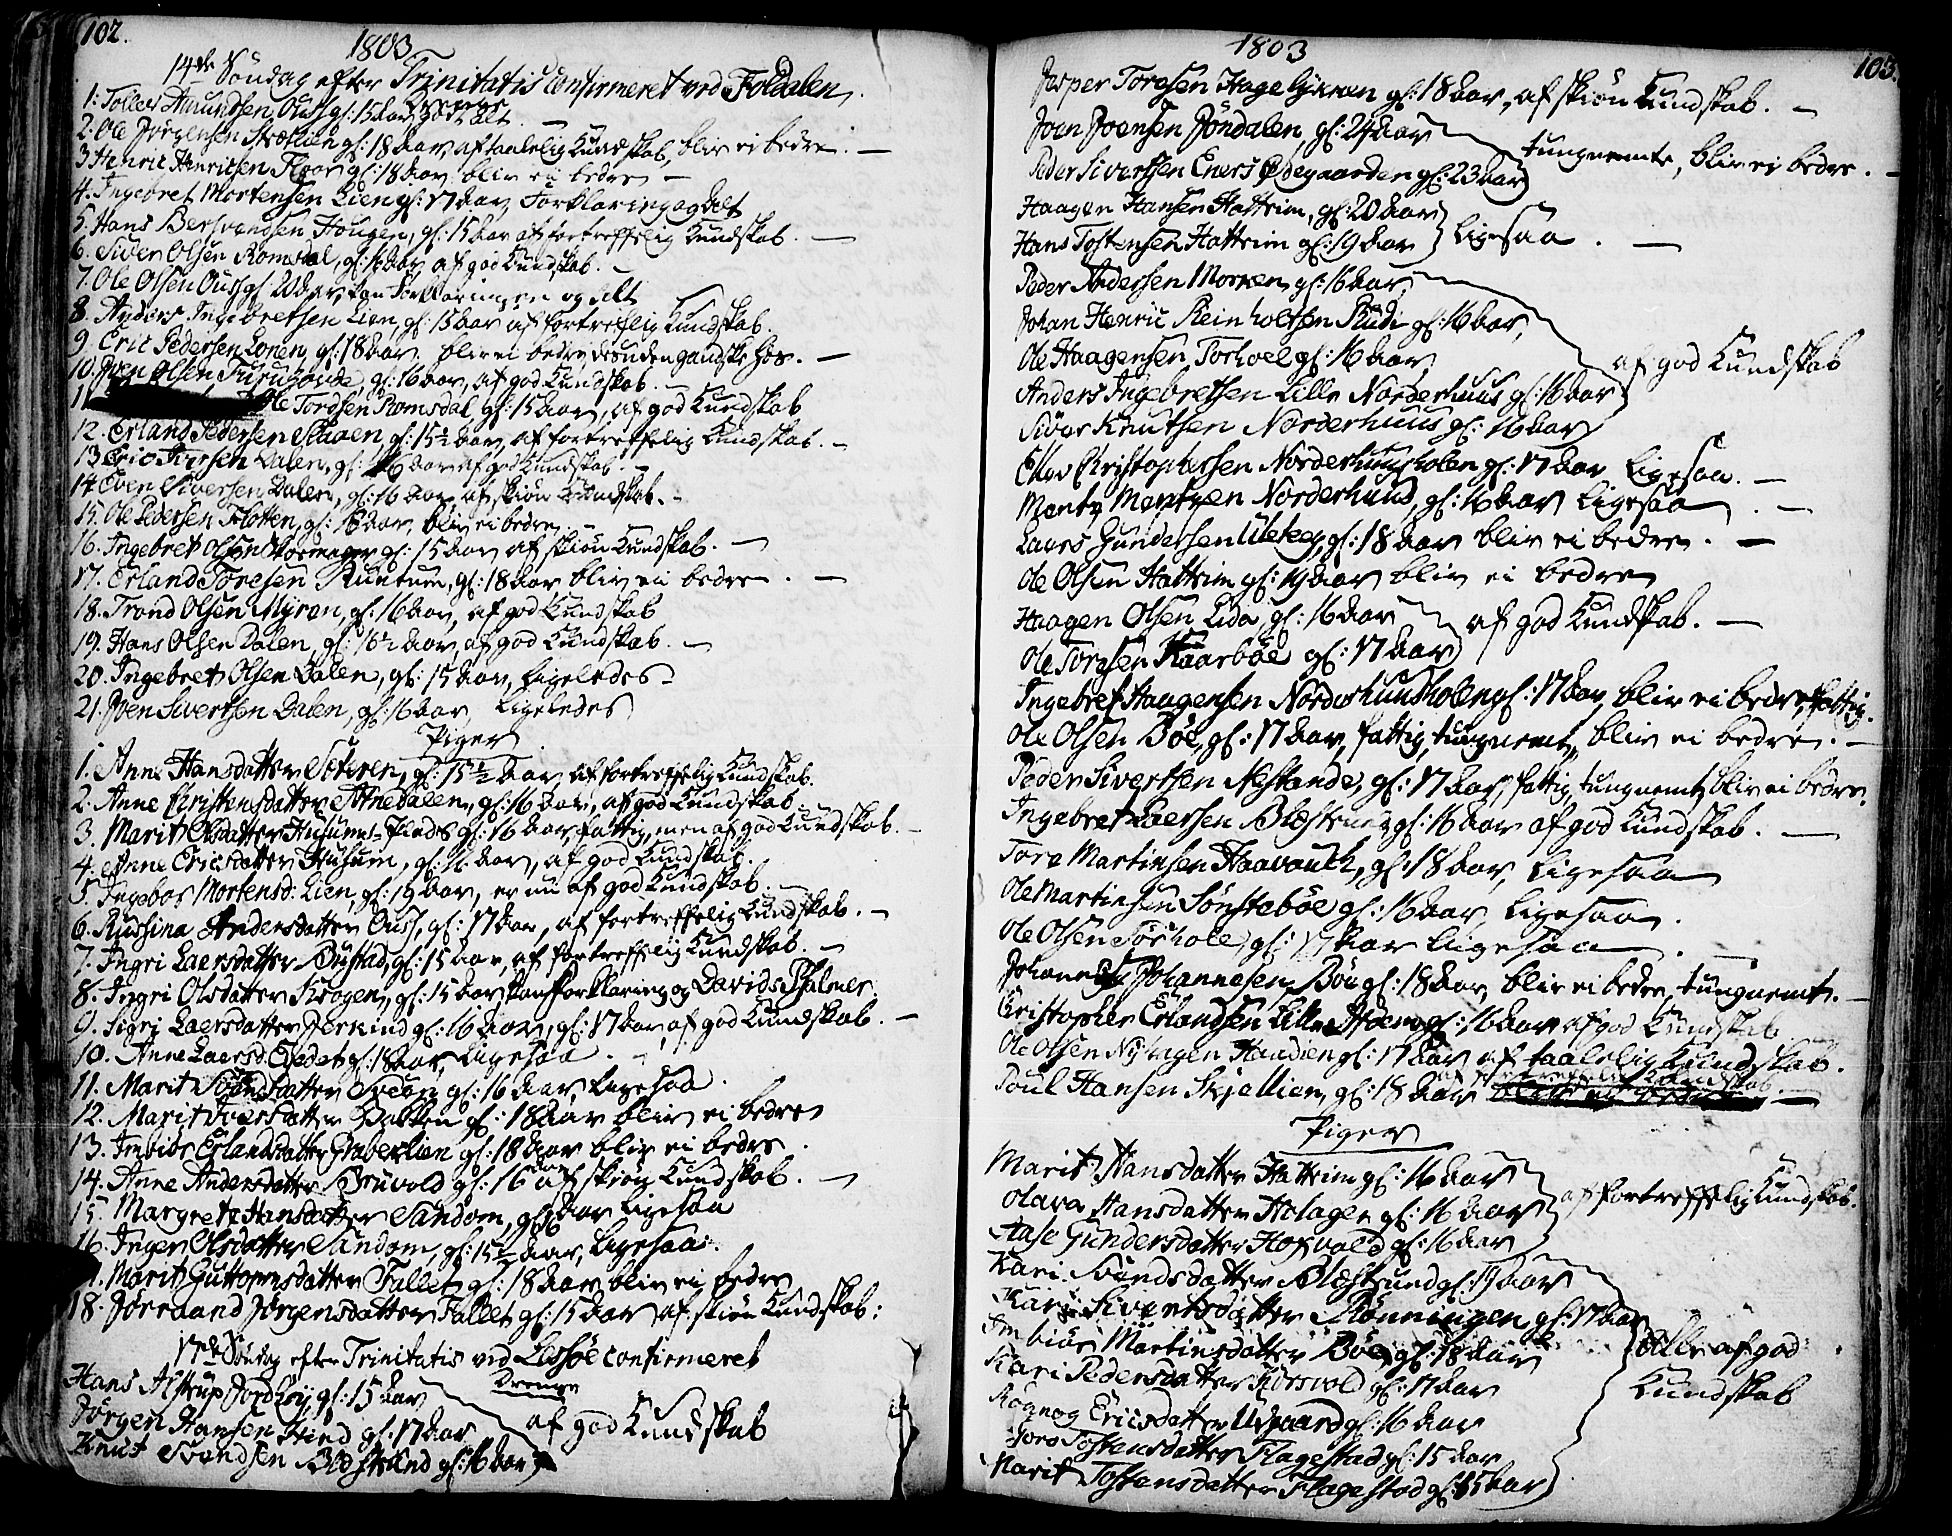 102.
1803
14de Söndag efter Trinitatis confirmeret ved Foldalen.
Drenge
1. Tollef Amundsen Ous gl: 15 aar godt alt.
2. Ole Jörgensen gl: 18 aar, af taalelig Kundskab, bliv ei bedre. —
3 Henric Henricsen Floor gl: 18 aar bliv ei bedre —
4. Ingebret Mortensen Lien gl: 17 aar, Forklaring og alt
5. Hans Bersvendsen Hougen, gl: 15 aar af fortreffelig Kundskab. —
6. Siver Olsen Romsdal, gl: 16 aar, af god Kundskab. —
7. Ole Olsen Ous gl 20 aar, kan Forklaringen og alt
8. Anders Ingebretsen Lien, gl: 15 aar af fortreflig Kundskab.
9. Eric Pedersen Lonen, gl: 18 aar. bliv ei bedre, desuden gandske
10. Iven Olsen Furuhovde, gl: 16 aar, af god Kundskab. —
11 Ole Tordsen Romsdal gl: 15 aar, af god Kundskab
12. Erland Pedersen gl: 15½ aar, af fortreffelig Kundskab. —
13 Eric Iversen Dalen, gl: 16 aar af god Kundskab. —
14 Even Siversen Dalen, gl: 16 aar, af skiön Kundskab. —
15. Ole Pedersen Flotten, gl: 18 aar, bliv ei bedre. —
16. Ingebret Olsen Skoemager gl: 15 aar af skiön Kundskab. —
17. Erland Toresen gl: 18 aar bliv ei bedre. —
18. Trond Olsen Myren, gl: 16 aar, af god Kundskab
19. Hans Olsen Dalen, gl: 16½ aar af god Kundskab. —
20. Ingebret Olsen Dalen, gl: 15 aar, Ligeledes —
21. Iven Sivertsen Dalen, gl: 16 aar, Ligeledes
Piger
1. Anne Hansdatter gl: 15½ aar af fortreffelig Kundskab.
2. Anne Christensdatter Atnedalen, gl: 16 aar, af god Kundskab.
3. Marit Olsdatter gl: 16 aar, fattig, men af god Kundskab. —
4. Anne Ericsdatter Husum, gl: 16 aar, af god Kundskab.
5. Ingebor Mortensd: Lien, gl: 19 aar, er nu af god Kundskab. —
6. Andersdatter Ous, gl: 17 aar, af fortreffelig Kundskab. —
7. Ingri Laersdatter gl: 15 aar, af fortreffelig Kundskab. —
8. Ingri Olsdatter Krogen, gl: 15 aar kan forklaring og Davids Psalmer.
9. Sigri Laersdatter gl: 16 aar, gl: 17 aar, af god Kundskab. —
10. Anne Laersd: gl: 18 aar, Ligesaa. —
11. Marit gl: 16 aar, Ligesaa.
12. Marit Iversdatter Bakken gl: 18 aar bliv ei bedre
13. Imbiör Erlandsdatter Graberlien gl: 18 aar bliv ei bedre.
14. Anne Andersdatter Bruvold gl: 16 aar af skiön Kundskab. —
15. Margrete Hansdatter Sandom, gl: aar Ligesaa
16. Inger Olsdatter Sandom, gl: 15½ aar, Ligesaa.
17. Marit Guttormsdatter Fallet gl: 18 aar bliv ei bedre
18. Jörraand Jörgensdatter Fallet gl: 15 aar af skiön Kundskab:
17de Söndag efter Trinitatis ved Lessöe confirmeret
Drenge
Hans Alstrup Jordhöy gl: 15 aar
Jörgen Hansen gl: 17 aar af god Kundskab
Knut Svendsen Blestrund gl: 16 aar
103.
1803
Jesper Toresen Hage gl: 18 aar, af skiön Kundskab. —
Joen Joensen Jöndalen, gl: 24 aar
Peder Sivertsen Eners Ödegaarden gl: 23 aar tungnemte, bliv ei bedre. —
Haagen Hansen Hattrim, gl: 20 aar
Hans Tostensen Hattrim gl: 19 aar Ligesaa. —
Peder Andersen Morken gl: 16 aar,
Johan Henric Reinholtsen Rudi gl: 16 aar,
Ole Haagensen gl: 16 aar, af god Kundskab
Anders Ingebretsen Lille Norderhuus gl: 16 aar
Siver Knutsen Norderhuus gl: 16 aar
Christophersen Norderhuusholen gl: 17 aar Ligesaa. —
Norderhuus, gl: 16 aar Ligesaa. —
Laurs Gundersen gl: 18 aar bliv ei bedre. —
Ole Olsen Hattrim gl: 19 aar bliv ei bedre
Haagen Olsen Lida, gl: 16 aar
Ole Toresen Kaarböe gl: 17 aar af god Kundskab. —
Ingebret Haagensen Norderhuusholen gl: 17 aar, bliv ei bedre, fattig.
Ole Olsen Böe, gl: 17 aar, fattig, tungnemt, bliv ei bedre. —
Peder Sivertsen Nestande, gl: 17 aar, fattig, tungnemt, bliv ei bedre.
Ingebret Laersen gl: 16 aar af god Kundskab. —
Tore Martinsen gl: 18 aar, Ligesaa
Ole Martinsen Sönsteböe gl: 16 aar, Ligesaa.
Ole Olsen gl: 17 aar Ligesaa. —
Johannes Johannesen Böe gl: 18 aar, bliv ei bedre, tungnemt. —
Christopher Erlandsen Lille gl: 16 aar af god Kundskab
Ole Olsen gl: 17 aar af taalelig Kundskab.
af fortreffelig Kundskab
Poul Hansen Skjellien, gl: 18 aar —
Piger
Marit Hansdatter Hattrim gl: 16 aar
Olava Hansdatter Holagen gl: 16 aar af fortreffelig Kundskab.
Aase Gundersdatter Hofvold gl: 16 aar
Kari Svendsdatter Blestrund gl: 19 aar
Kari Sivertsdatter Rönningen gl: 17 aar
Imbiör Martinsdatter Böe gl: 18 aar Alle af god
Kari Pedersdatter gl: 17 aar Kundskab
Rögnog Ericsdatter gl: 16 aar
Joro Tostensdatter Flagestad gl: 15 aar
Marit Tostensdatter Flagestad gl: 15 aar